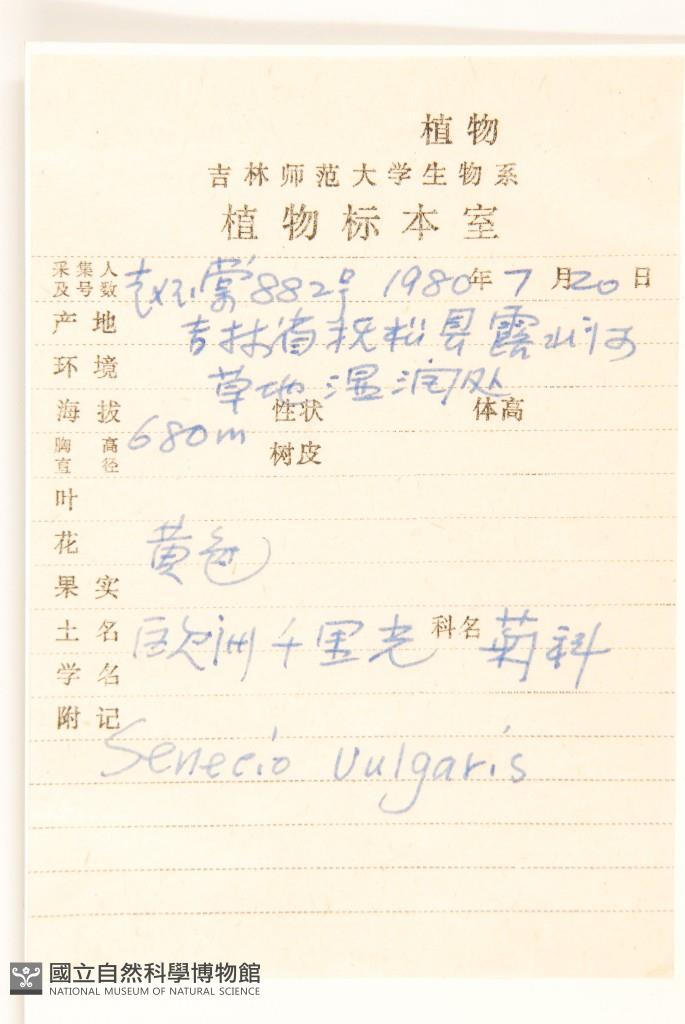 植物
吉林师范大学生物系
植物标本室
采集人及号数 赵 棠882号 1980年7月20日
产地 吉林省抚松县露水河
环境 草地湿润处
海拔 680m 性状 体高
胸高直径 树皮
叶
花 黄色
果实
土名 欧洲千里光 科名 菊科
学名
附记
Senecio vulgaris
國立自然科學博物館
NATIONAL MUSEUM OF NATURAL SCIENCE